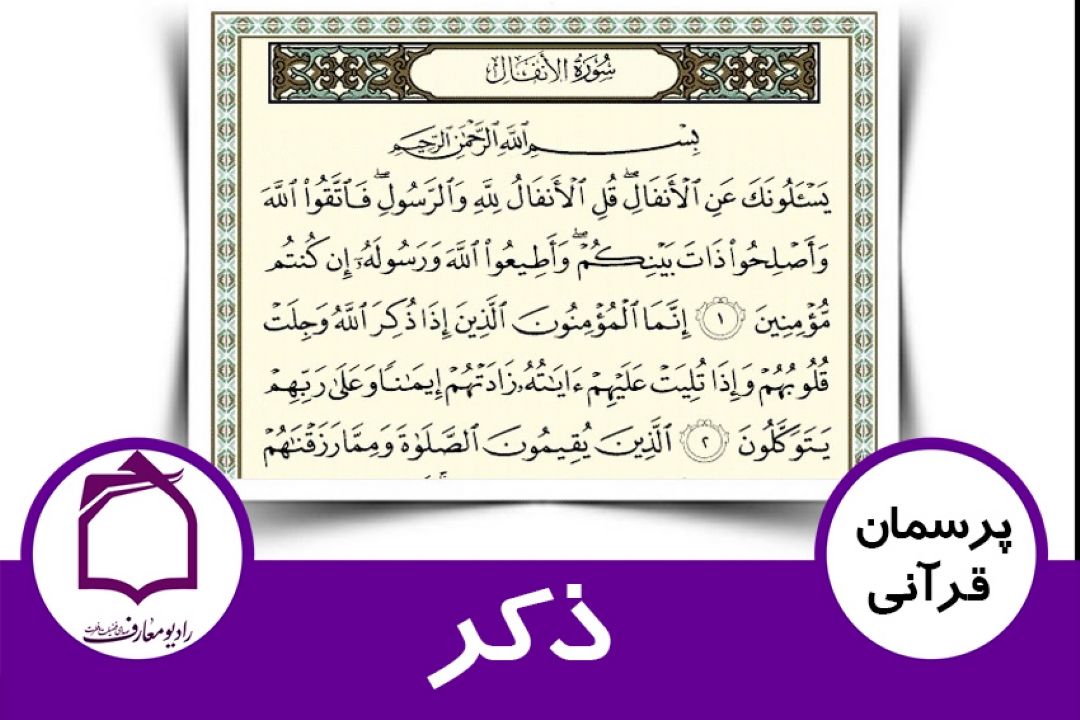 سُورَةُ الأَنفَال
بِسْمِ ٱللَّهِ ٱلرَّحْمَٰنِ ٱلرَّحِيمِ
يَسْـَٔلُونَكَ عَنِ ٱلْأَنفَالِ ۖ قُلِ ٱلْأَنفَالُ لِلَّهِ وَٱلرَّسُولِ ۖ فَٱتَّقُوا۟ ٱللَّهَ
وَأَصْلِحُوا۟ ذَاتَ بَيْنِكُمْ ۖ وَأَطِيعُوا۟ ٱللَّهَ وَرَسُولَهُۥٓ إِن كُنتُم
مُّؤْمِنِينَ ١ إِنَّمَا ٱلْمُؤْمِنُونَ ٱلَّذِينَ إِذَا ذُكِرَ ٱللَّهُ وَجِلَتْ
قُلُوبُهُمْ وَإِذَا تُلِيَتْ عَلَيْهِمْ ءَايَٰتُهُۥ زَادَتْهُمْ إِيمَٰنًا وَعَلَىٰ رَبِّهِمْ
يَتَوَكَّلُونَ ٢ ٱلَّذِينَ يُقِيمُونَ ٱلصَّلَوٰةَ وَمِمَّا رَزَقْنَٰهُمْ
پرسمان
قرآنی
رادیو معارف صدای فضیلت و فطرت
ذکر